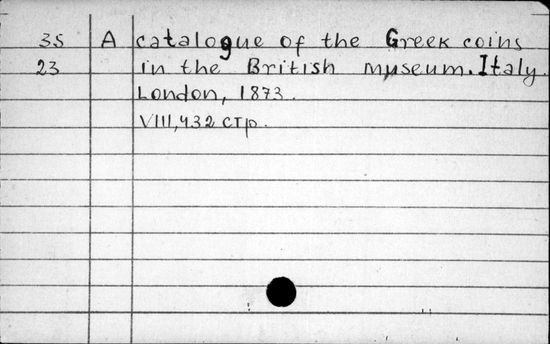 35 A catalogue of the Greek coins
23 in the British museum. Italy.
London, 1873.
VIII, 432 стр.